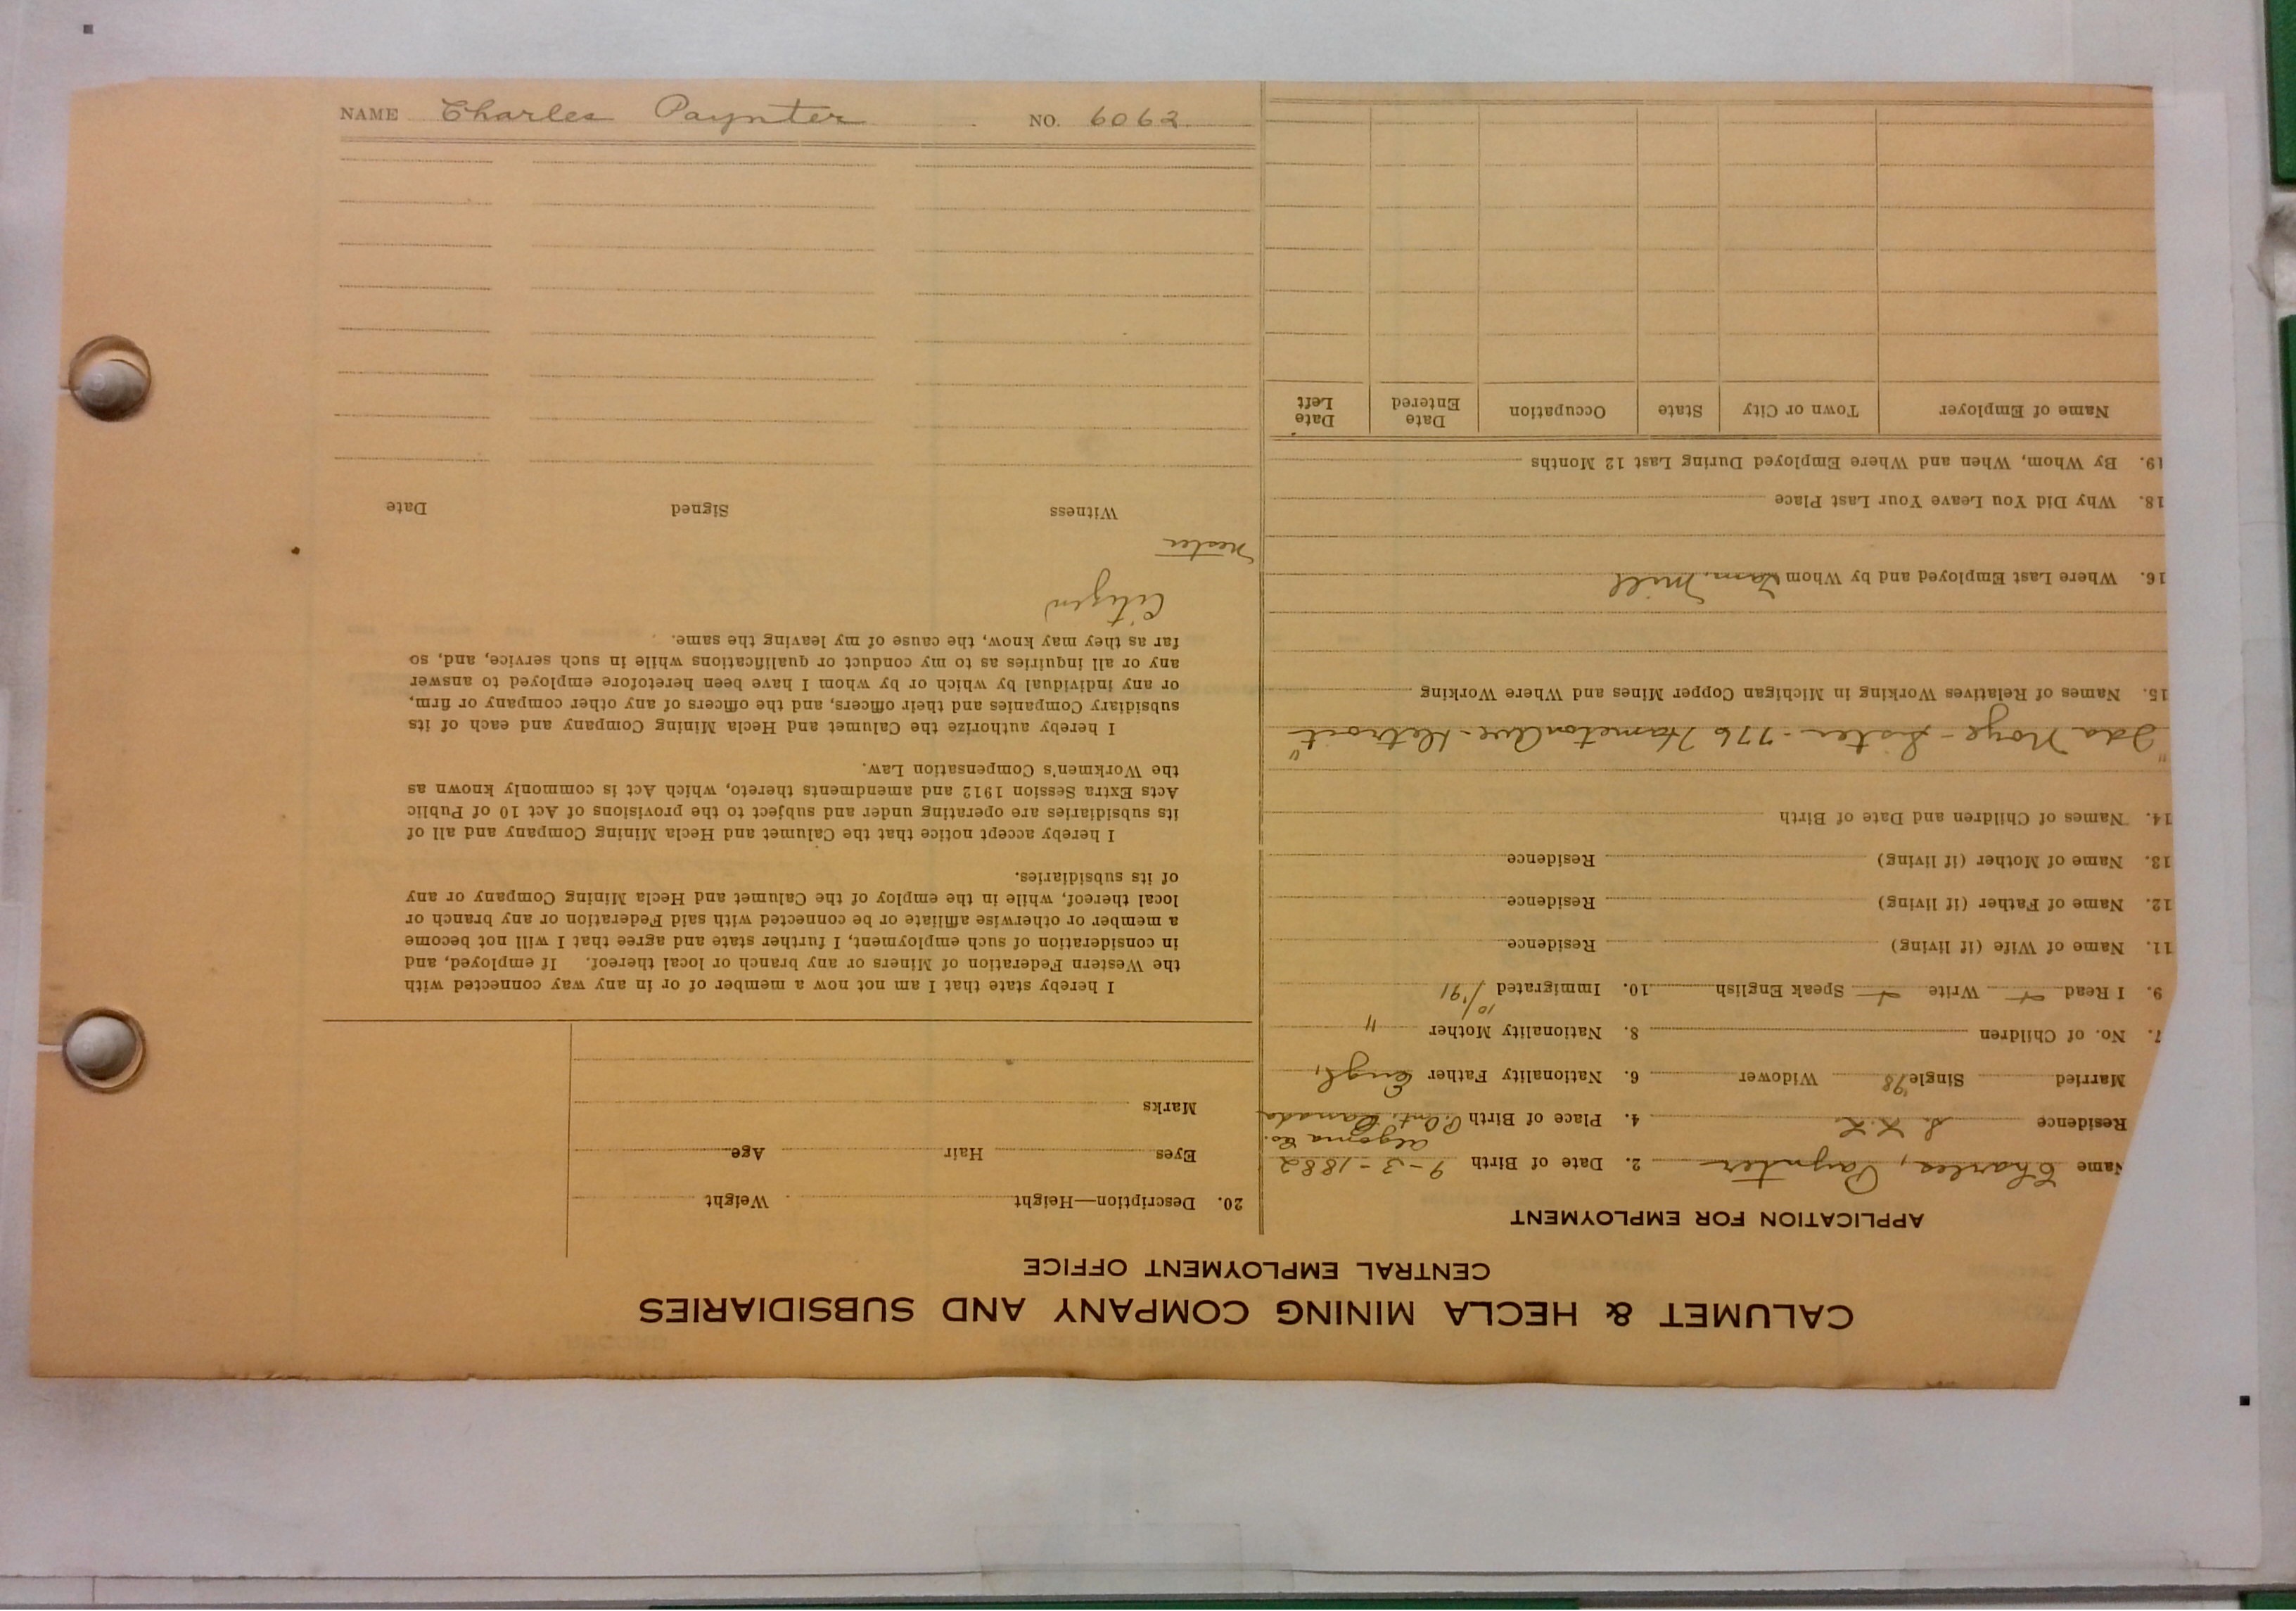 NAME Charles Paynter NO. 6062
CALUMET & HECLA MINING COMPANY AND SUBSIDIARIES
CENTRAL EMPLOYMENT OFFICE
APPLICATION FOR EMPLOYMENT
Name Charles, Paynter 2. Date of Birth 9-3-1882
Algoma Co.
Residence L. L. 4. Place of Birth P. Ont. Canada
Married Single Widower 6. Nationality Father Engl.
7. No. of Children 8. Nationality Mother "
9. I Read Write Speak English 10. Immigrated 10/ /91
11. Name of Wife (if living) Residence
12. Name of Father (if living) Residence
13. Name of Mother (if living) Residence
14. Names of Children and Date of Birth
" Ida Noye - Sister - 776 Hameton Ave - Detroit "
15. Names of Relatives Working in Michigan Copper Mines and Where Working
16. Where Last Employed and by Whom Tam. Mill
18. Why Did You Leave Your Last Place
19. By Whom, When and Where Employed During Last 12 Months
Name of Employer Town or City State Occupation Date Entered Date Left
20. Description—Height Weight
Eyes Hair Age
Marks
I hereby state that I am not now a member of or in any way connected with
the Western Federation of Miners or any branch or local thereof. If employed, and
in consideration of such employment, I further state and agree that I will not become
a member or otherwise affiliate or be connected with said Federation or any branch or
local thereof, while in the employ of the Calumet and Hecla Mining Company or any
of its subsidiaries.
I hereby accept notice that the Calumet and Hecla Mining Company and all of
its subsidiaries are operating under and subject to the provisions of Act 10 of Public
Acts Extra Session 1912 and amendments thereto, which Act is commonly known as
the Workmen's Compensation Law.
I hereby authorize the Calumet and Hecla Mining Company and each of its
subsidiary Companies and their officers, and the officers of any other company or firm,
or any individual by which or by whom I have been heretofore employed to answer
any or all inquiries as to my conduct or qualifications while in such service, and, so
far as they may know, the cause of my leaving the same.
Citizen
Nester
Witness Signed Date